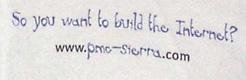 So you want to build the Internet?
www.pmc-sierra.com